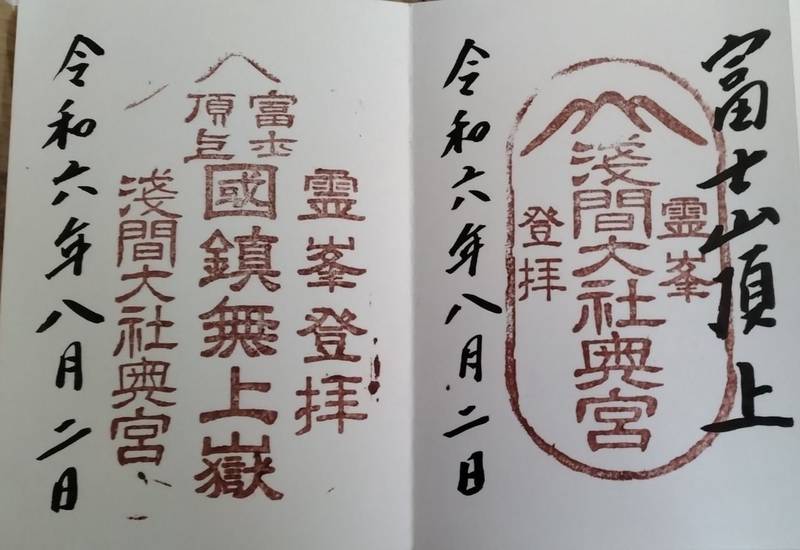 富士山頂上
霊峯
淺間大社奥宮
登拝
令和六年八月二日
富士
頂上
霊峯登拝
國鎮無上嶽
淺間大社奥宮
令和六年八月二日